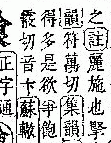 之註麗施也擊
韻符萬切集韻
得多是欲爭飽
霰切音卞蘇轍
正字通